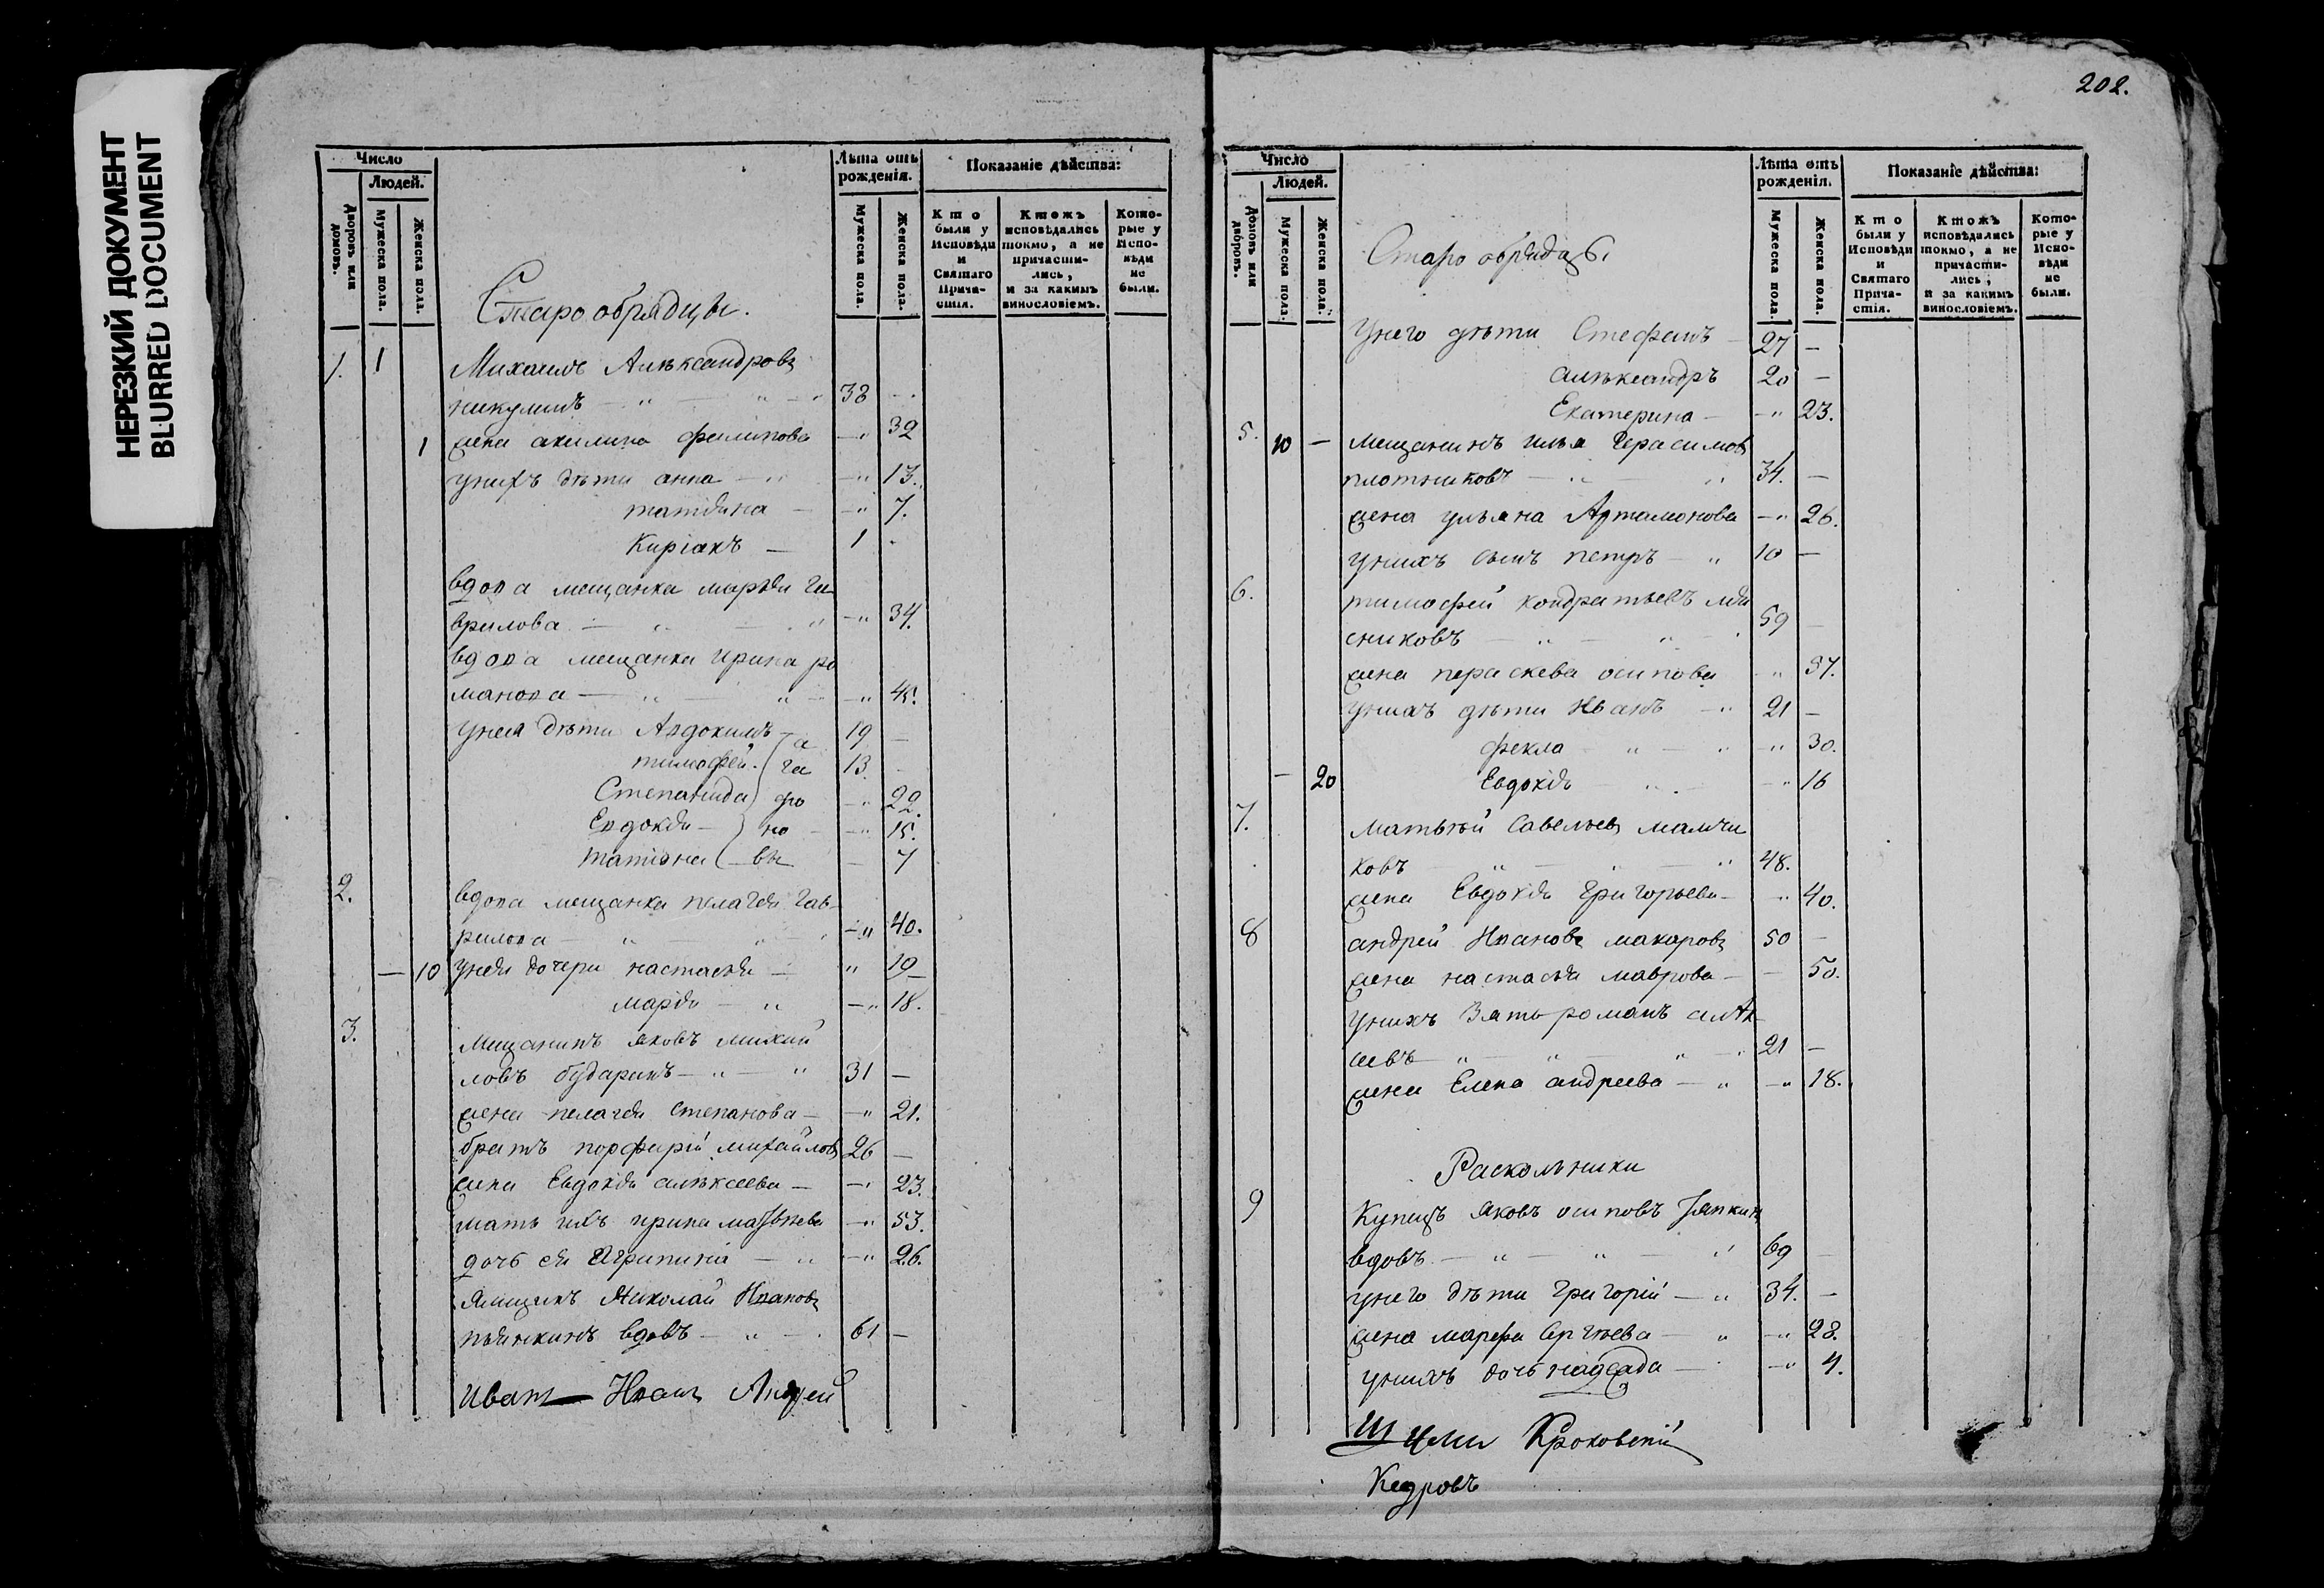 НЕРЕЗКИЙ ДОКУМЕНТ
BLURRED DOCUMENT
Число
Людей.
Дворовъ или домовъ.
Мужеска пола.
Женска пола.
Лѣта отъ рожденія.
Мужеска пола.
Женска пола.
Показаніе дѣйства:
Кто были у Исповѣди и Святаго Причастія.
Ктожъ исповѣдались токмо, а не причастились, и за какимъ винословіемъ.
Которые у Исповѣди не были.
Старообрядцы.
1. 1 Михаилъ Алѣксандровъ
никулинъ — „ — „ — 38 —
1 жена акилина филипова — „ 32
унихъ дѣти анна — „ — „ 13.
татіана — — „ 7.
Киріакъ — 1 -
вдова мещанка марья га
врилова — „ — „ — „ 34.
вдова мещанка ирина ро
манова — „ — „ — „ 45.
унея дѣти Авдокимъ — а 19 —
тимофей га 13. -
Степанида фо — „ 22.
Евдокія — но — „ 15.
татіана — вы — 7
2. вдова мещанка пелагея гав
рилова — „ — „ — „ 40.
— 10 унея дочери настасья — „ 19
марія — „ — „ 18.
3. Мещанинъ яковъ михай
ловъ бударинъ — „ — „ 31 —
жена пелагея степанова — — „ 21.
братъ порфирій михайловъ 26 —
жена Евдокія алѣксеева — — „ 23.
мать ихъ ирина матвѣева — „ 53.
дочь ея Агрипина — „ — „ 26.
Ямщикъ Николай Ивановъ
пьянкинъ вдовъ — „ — 61 —
Иванъ Иванъ Андрей
202.
Число
Людей.
Домовъ или дворовъ.
Мужеска пола.
Женска пола.
Лѣта отъ рожденія.
Мужеска пола.
Женска пола.
Показаніе дѣйства:
Кто были у Исповѣди и Святаго Причастія.
Ктожъ исповѣдались токмо, а не причастились, и за какимъ винословіемъ.
Которые у Исповѣди не были.
Старообрядцы
Унего дѣти Стефанъ — 27 —
алѣксандръ 20 —
Екатерина — — „ 23.
5. 10 — мещанинъ илья Герасимовъ
плотниковъ — „ — „ 34. —
жена ульяна Артамонова — „ 26.
унихъ сынъ петръ — „ 10 —
6. тимофей кондратьевъ мя
сниковъ — „ — „ 59 —
жена параскева осипова „ 57.
унихъ дѣти Иванъ — „ 21 —
фекла „ — „ „ 30.
— 20 Евдокія „ — „ 16
7. матвѣй Савельевъ мамчи
ковъ „ — „ — „ 48.
жена Евдокія Григорьева — „ 40.
8 андрей Ивановъ макаровъ 50 —
жена настасья маврова — — 50.
унихъ Зять романъ алѣк
сѣевъ — „ — „ — „ — „ 21 —
жена Елена андреева — „ — „ 18.
Раскольники
9 Купецъ яковъ осиповъ
вдовъ — „ — „ — „ 69 —
унего дѣти григорій — „ 34. —
жена марфа Сергѣева — „ — „ 28.
унихъ дочь — „ 4.
Кроковскій
Кедровъ